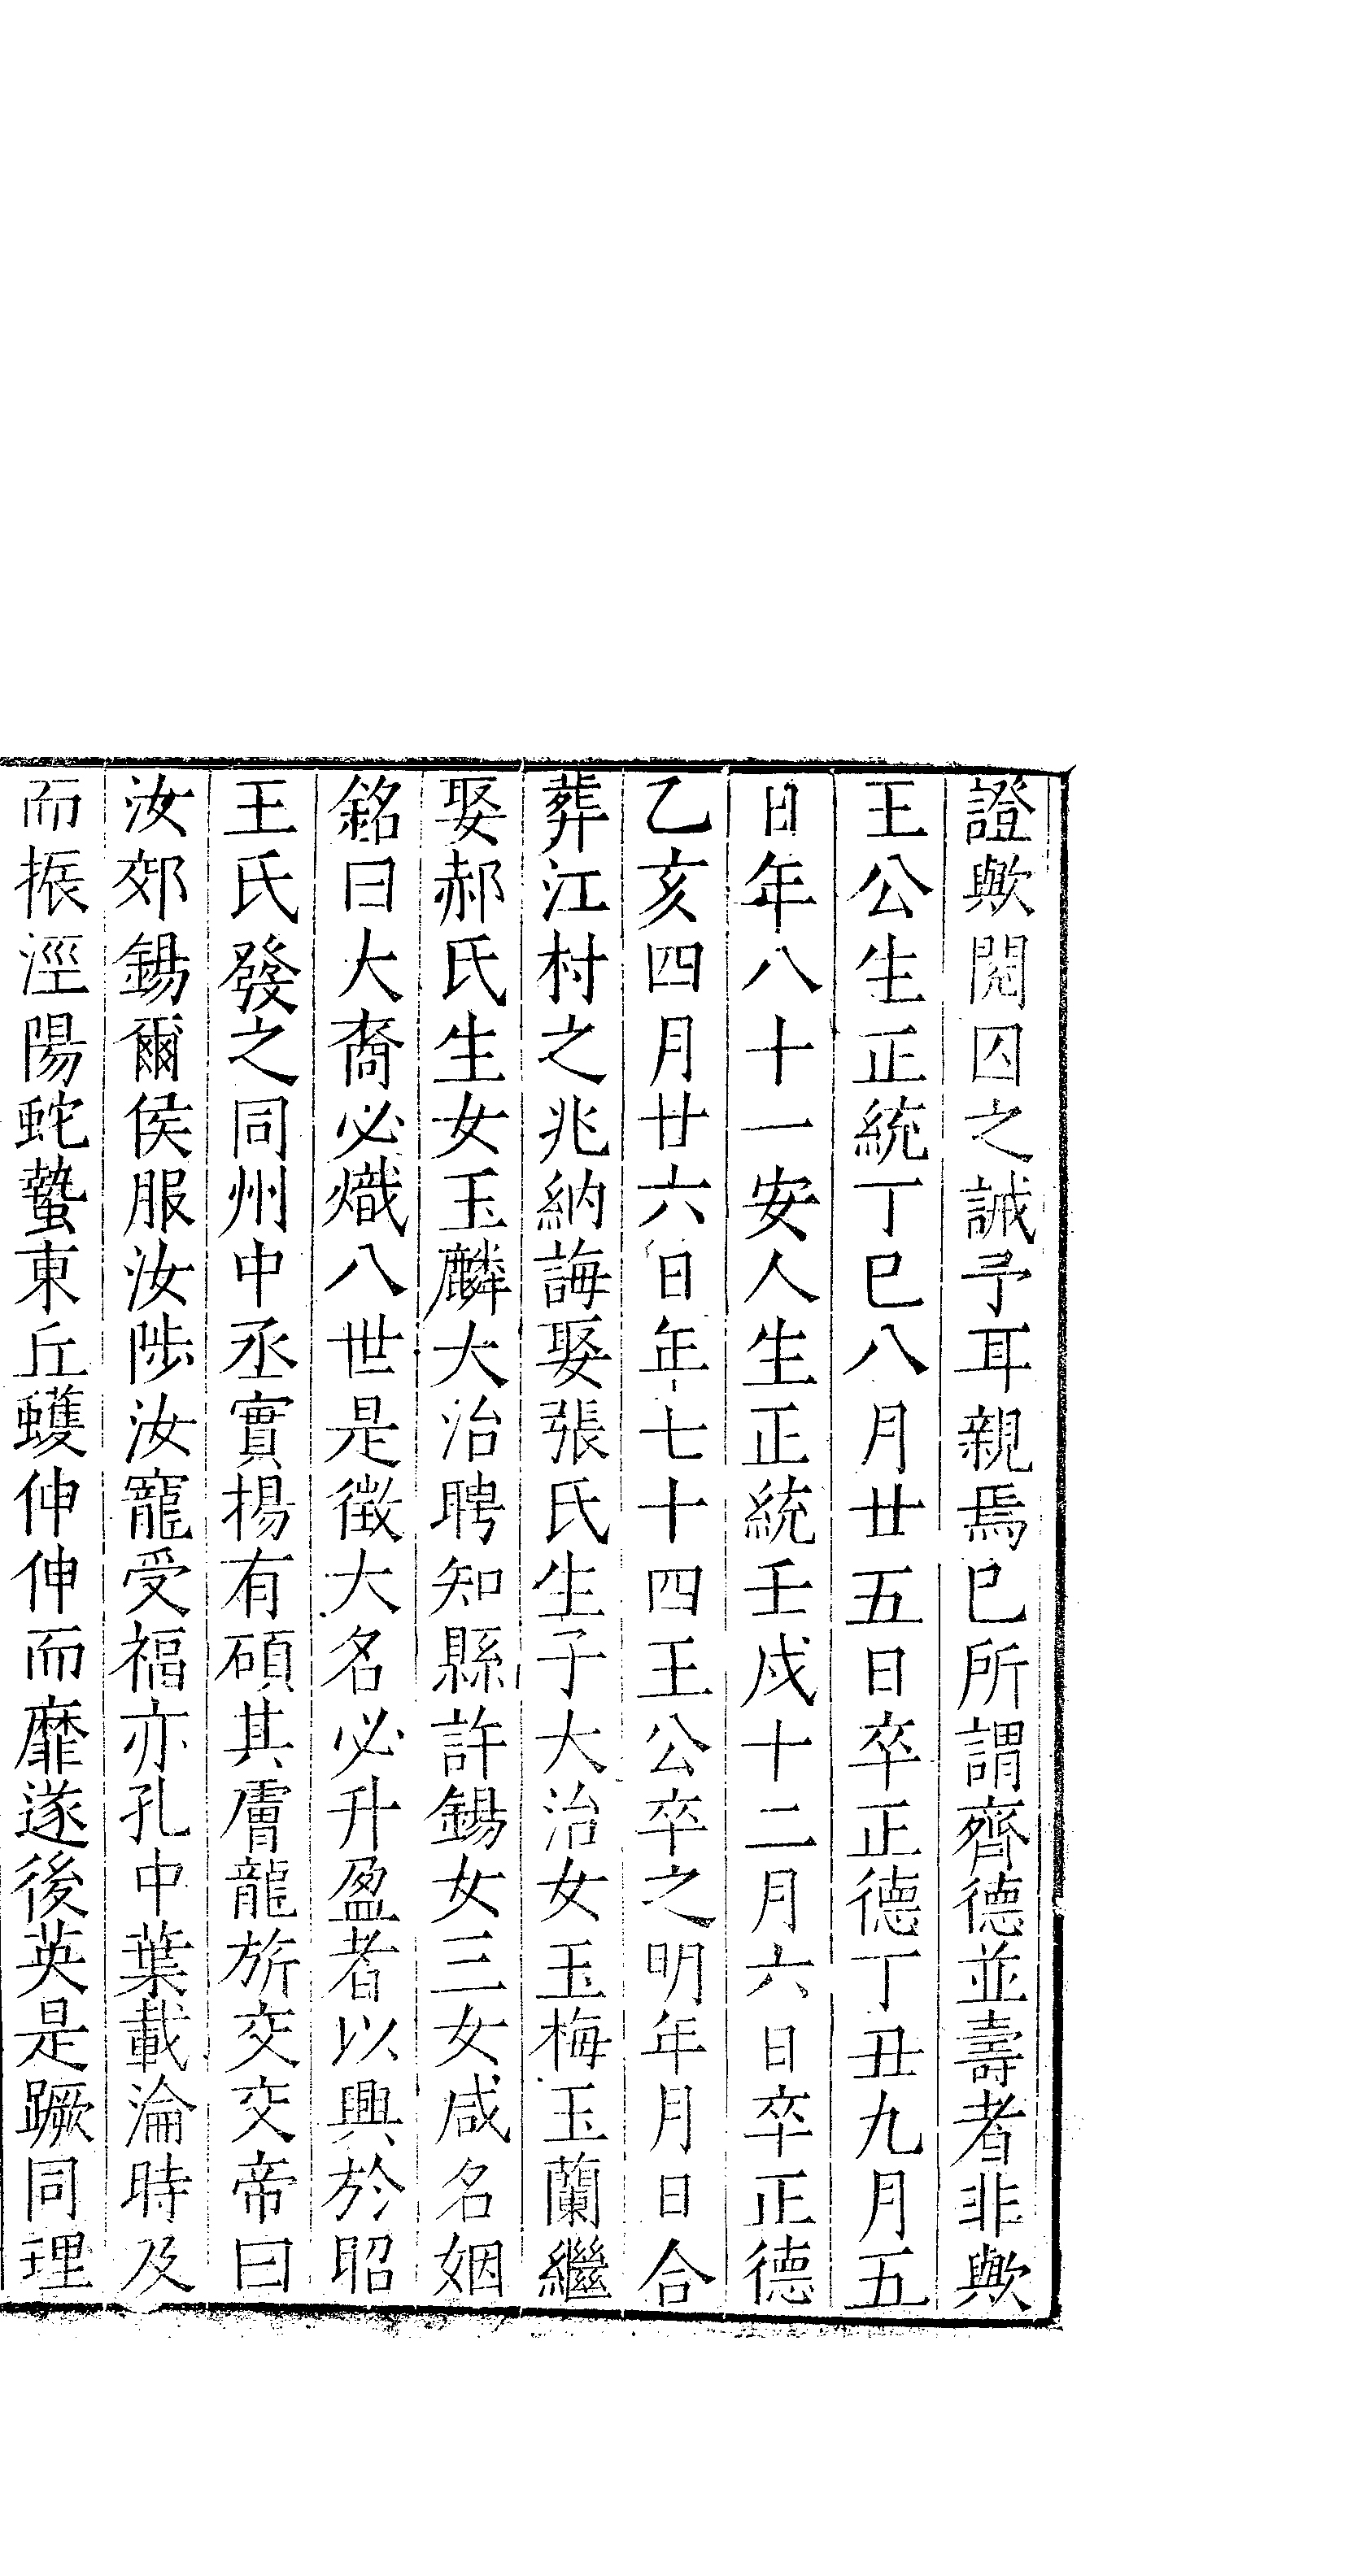 證歟閱囚之誠予耳親焉已所謂齊德並壽者非歟
王公生正統丁巳八月廿五日卒正德丁丑九月五
日年八十一安人生正統壬戌十二月六日卒正德
乙亥四月廿六日年七十四王公卒之明年月日合
葬江村之兆納誨娶張氏生子大治女玉梅玉蘭繼
娶郝氏生女玉麟大治聘知縣許鍚女三女咸名姻
銘曰大裔必熾八世是徵大名必升盈者以興於昭
王氏發之同州中丞實楊有碩其膚龍旂交交帝曰
汝郊錫爾侯服汝陟汝寵受福亦孔中葉載淪時及
而振涇陽蛇蟄東丘蠖伸伸而靡遂後英是蹶同理